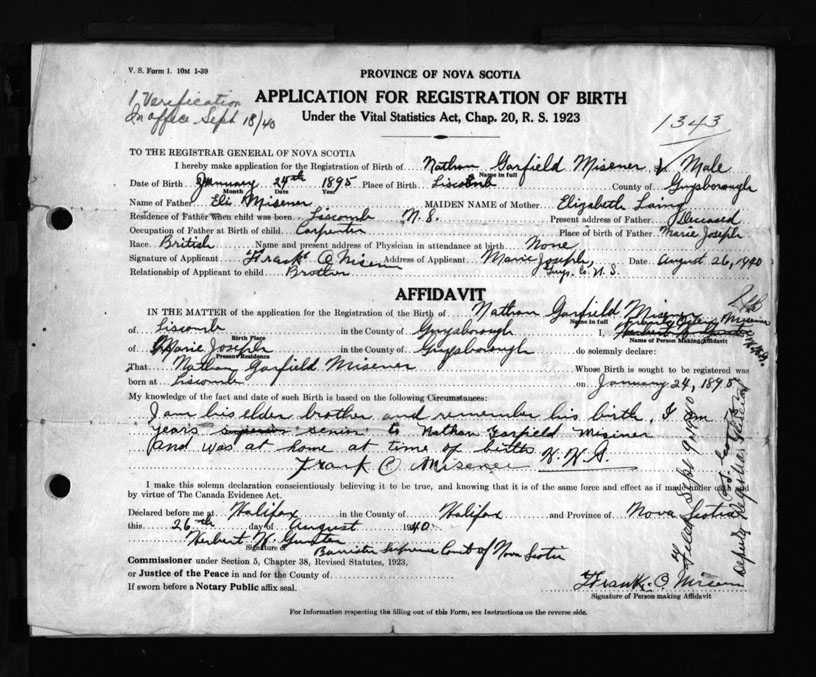 V. S. Form 1. 10M 1-39
PROVINCE OF NOVA SCOTIA
1 Verification
In office Sept 18/40
APPLICATION FOR REGISTRATION OF BIRTH
Under the Vital Statistics Act, Chap. 20, R. S. 1923
1343
TO THE REGISTRAR GENERAL OF NOVA SCOTIA
I hereby make application for the Registration of Birth of Nathan Garfield Misener Male
Name in full
Date of Birth January 24th 1895 Place of Birth Liscomb County of Guysborough
Month Date Year
Name of Father Eli Misener MAIDEN NAME of Mother Elizabeth Laing
Residence of Father when child was born Liscomb N.S. Present address of Father Deceased
Occupation of Father at Birth of child Carpenter Place of birth of Father Marie Joseph
Race British Name and present address of Physician in attendance at birth None
Signature of Applicant Frank C Misener Address of Applicant Marie Joseph, Date August 26, 1940
Relationship of Applicant to child Brother Guys. Co. N.S.
AFFIDAVIT
IN THE MATTER of the application for the Registration of the Birth of Nathan Garfield Misener
Name in full
of Liscomb in the County of Guysborough I, Misener
Birth Place Name of Person Making Affidavit
of Marie Joseph in the County of Guysborough do solemnly declare:
Present Residence
That Nathan Garfield Misener Whose Birth is sought to be registered was
born at Liscomb on January 24, 1895
My knowledge of the fact and date of such Birth is based on the following Circumstances:
I am his elder brother and remember his birth. I am
years senior to Nathan Garfield Misener
and was at home at time of birth
Frank C Misener
I make this solemn declaration conscientiously believing it to be true, and knowing that it is of the same force and effect as if made under oath and
by virtue of The Canada Evidence Act.
Declared before me at Halifax in the County of Halifax and Province of Nova Scotia
this 26th day of August 1940
Herbert W.
Signature of Barrister Supreme Court of Nova Scotia
Commissioner under Section 5, Chapter 38, Revised Statutes, 1923,
or Justice of the Peace in and for the County of
If sworn before a Notary Public affix seal.
Frank C. Misener
Signature of Person making Affidavit
For Information respecting the filling out of this Form, see Instructions on the reverse side.
Filed Sept 9 1940
Deputy Registrar General